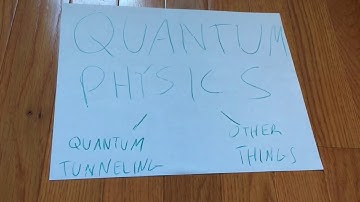 QUANTUM
PHISICS
QUANTUM
TUNNELING
OTHER
THINGS